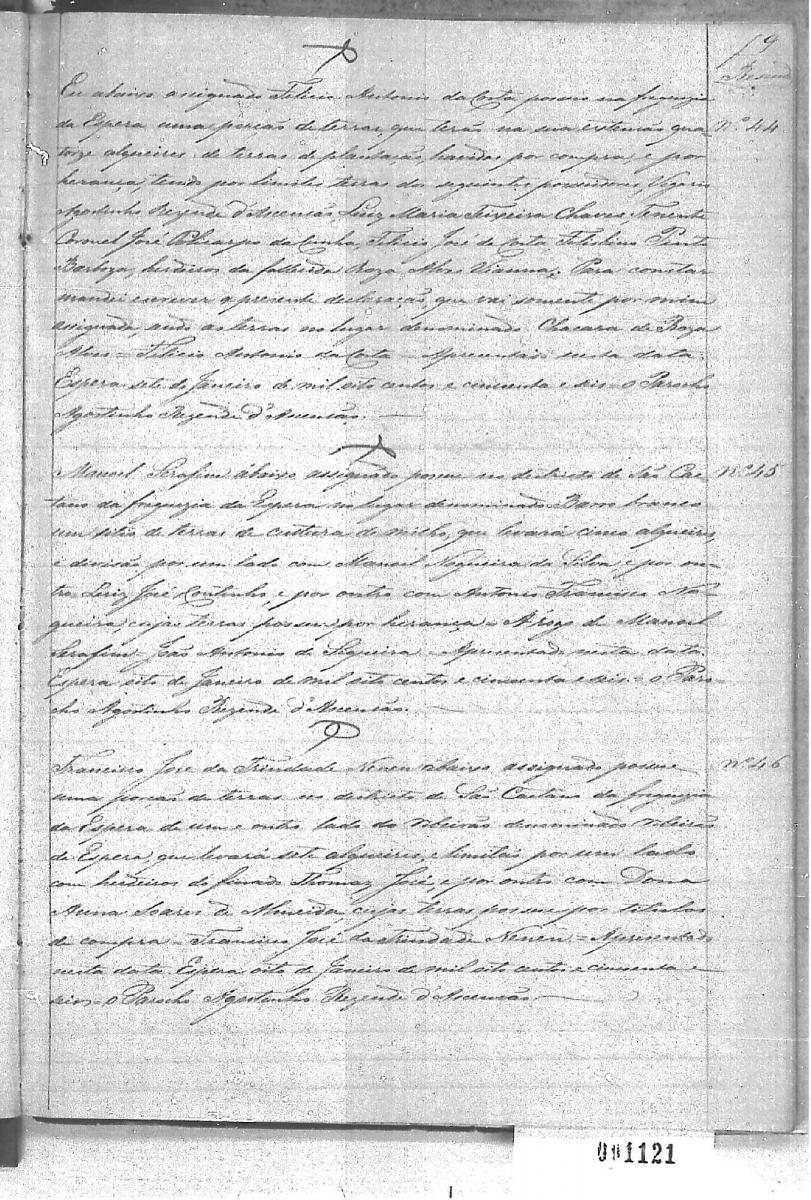 f 9
Resende
Eu abaixo assignado Felicio Antonio da Costa possuo na freguezia
da Espera uma porcaõ de terras, que teraõ na sua extensaõ qua Nº 44
torze alqueires de terras de plantaçaõ, havidas por compra, e por
herança, tendo por limites terras dos seguintes possuidores, Vigario
Agostinho Rezende d'Ascensaõ, Luiz Maria Teixeira Chaves, Tenente
Coronel José Policarpo da Cunha, Felicio José da Costa, Felisbino Pinto
Barboza, herdeiros da fallecida Roza Alves Vianna. Para constar
mandei escrever o presente declaraçaõ, que vai somente por mim
assignada, sendo as terras no lugar denominado Chacara de Roza
Alves = Felicio Antonio da Costa = Apresentado nesta data.
Espera sete de Janeiro de mil oito centos e cincoenta e seis = O Parocho
Agostinho Rezende d'Ascensaõ.
Manoel Serafim abaixo assignado possue no districto de Saõ Cae= Nº 45
tano da freguezia da Espera no lugar denominado Barro branco
um sitio de terras de cultura de milho, que levará cinco alqueires,
e divisaõ por um lado com Manoel Nogueira da Silva, e por ou=
tro Luiz José Coutinho, e por outro com Antonio Francisco No=
gueira, cujas terras possue por herança = A rogo de Manoel
Serafim = Joaõ Antonio de Siqueira = Apresentado nesta data.
Espera oito de Janeiro de mil oito centos e cincoenta e seis = O Paro=
cho Agostinho Rezende d'Ascensaõ.
Francisco José da Trindade Nenen abaixo assignado possue Nº 46
uma porcaõ de terras no districto de Saõ Caetano da freguezia
da Espera de um e outro lado do ribeiraõ denominado ribeiraõ
da Espera, que levará sete alqueires, e limitaõ por um lado
com herdeiros do finado Thomaz José, e por outro com Dona
Anna Soares de Almeida, cujas terras possue por titulos
de compra = Francisco José da Trindade Nenen = Apresentado
nesta data. Espera oito de Janeiro de mil oito centos e cincoenta e
seis = O Parocho Agostinho Rezende d'Ascensaõ.
001121